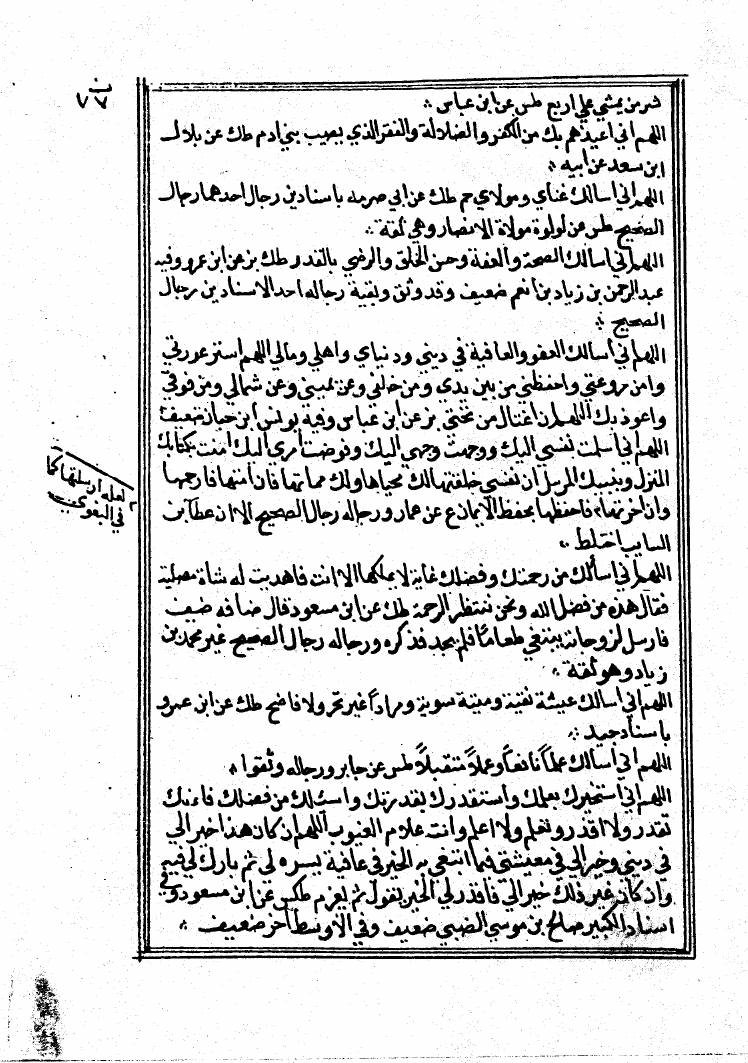 ن
٧٧
شر من يمشي على اربع طس عن ابن عباس
اللهم اني اعيذهم بك من الكفر والضلالة والفقر الذي يصيب بني ادم طك عن بلال
ابن سعد عن ابيه
اللهم اني اسالك غناي ومولاي حم طك عن ابي صرمه باسنادين رجال احدهما رجال
الصحيح طس عن لولوة مولاة الانصار وهي ثقة
اللهم اني اسالك الصحة والعفة وحسن الخلق والرضي بالقدر طك بز عن ابن عمرو وفيه
عبد الرحمن بن زياد بن انعم ضعيف وقد وثق وبقية رجاله احد الاسنادين رجال
الصحيح
اللهم اني اسالك العفو والعافية في ديني ودنياي واهلي ومالي اللهم استر عورتي
وامن روعتي واحفظني من بين يدي ومن خلفي وعن يميني وعن شمالي ومن فوقي
واعوذ بك اللهم ان اغتال من تحتي بز عن ابن عباس وفيه يونس ابن خباب ضعيف
اللهم اني اسلمت نفسي اليك ووجهت وجهي اليك وفوضت امري اليك امنت بكتابك
المنزل وبنبيك المرسل ان نفسي خلقتها لك محياها ولك مماتها فان امتها فارحمها
وان اخرتها فاحفظها بحفظ الايمان ع عن عمار ورجاله رجال الصحيح الا ان عطآ بن
السايب اختلط
اللهم اني اسألك من رحمتك وفضلك فانه لا يملكها الا انت فاهديت له شاة مصلية
فقال هذه من فضل الله ونحن ننتظر الرحمة طك عن ابن مسعود قال ضافه ضيف
فارسل لزوجاته يبتغي طعاما فلم يجد فذكره ورجاله رجال الصحيح غير محمد بن
زياد وهو ثقة
اللهم اني اسالك عيشة نقية وميتة سوية ومراداً غير مخز ولا فاضح طك عن ابن عمرو
باسناد جيد
اللهم اني اسالك علماً نافعاً وعملاً متقبلاً طس عن جابر ورجاله وثقوا
اللهم اني استخيرك بعلمك واستقدرك بقدرتك واسئلك من فضلك فانك
تقدر ولا اقدر وتعلم ولا اعلم وانت علام الغيوب اللهم ان كان هذا خير الي
في ديني وخير الي في معيشتي فيما ابتغي به الخير في عافية يسره لي ثم بارك لي فيه
وان كان غير ذلك خير الي فاقدر لي الخير يقول ثم يعزم طكس عن ابن مسعود وفي
اسناد الكبير صالح بن موسي الضبي ضعيف وفي الاوسط اخر ضعيف
لعله ارسلتها كما
في البغوي